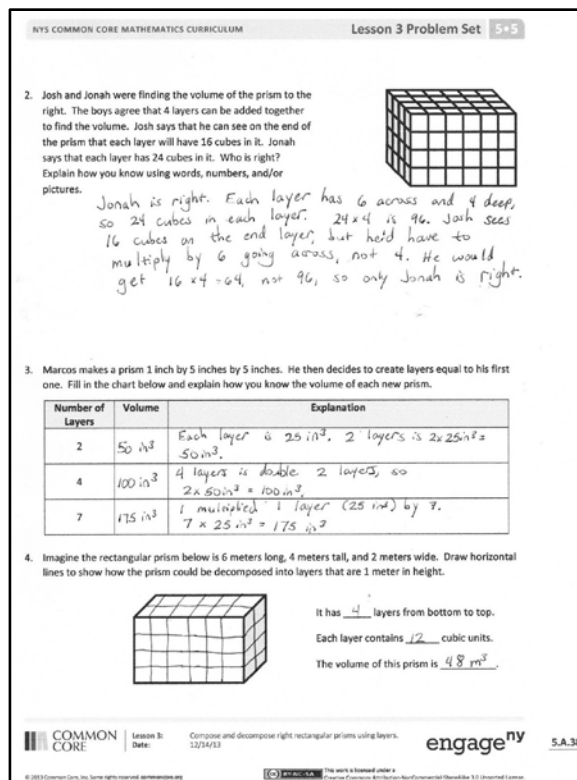 NYS COMMON CORE MATHEMATICS CURRICULUM
Lesson 3 Problem Set
5•5
2. Josh and Jonah were finding the volume of the prism to the
right. The boys agree that 4 layers can be added together
to find the volume. Josh says that he can see on the end of
the prism that each layer will have 16 cubes in it. Jonah
says that each layer has 24 cubes in it. Who is right?
Explain how you know using words, numbers, and/or
pictures.
Jonah is right. Each layer has 6 across and 4 deep,
so 24 cubes in each layer. 24 x 4 is 96. Josh sees
16 cubes on the end layer, but he'd have to
multiply by 6 going across, not 4. He would
get 16 x 4 = 64, not 96, so only Jonah is right.
3. Marcos makes a prism 1 inch by 5 inches by 5 inches. He then decides to create layers equal to his first
one. Fill in the chart below and explain how you know the volume of each new prism.
Number of
Layers
Volume
Explanation
2
50 in³
Each layer is 25 in³. 2 layers is 2 x 25 in³ =
50 in³.
4
100 in³
4 layers is double 2 layers, so
2 x 50 in³ = 100 in³.
7
175 in³
I multiplied 1 layer (25 in³) by 7.
7 x 25 in³ = 175 in³
4. Imagine the rectangular prism below is 6 meters long, 4 meters tall, and 2 meters wide. Draw horizontal
lines to show how the prism could be decomposed into layers that are 1 meter in height.
It has 4 layers from bottom to top.
Each layer contains 12 cubic units.
The volume of this prism is 48 m³.
COMMON
CORE
Lesson 3:
Date:
Compose and decompose right rectangular prisms using layers.
12/14/13
engage ny
5.A.38
© 2013 Common Core, Inc. Some rights reserved. commoncore.org
(cc) BY-NC-SA
This work is licensed under a
Creative Commons Attribution-NonCommercial-ShareAlike 3.0 Unported License.